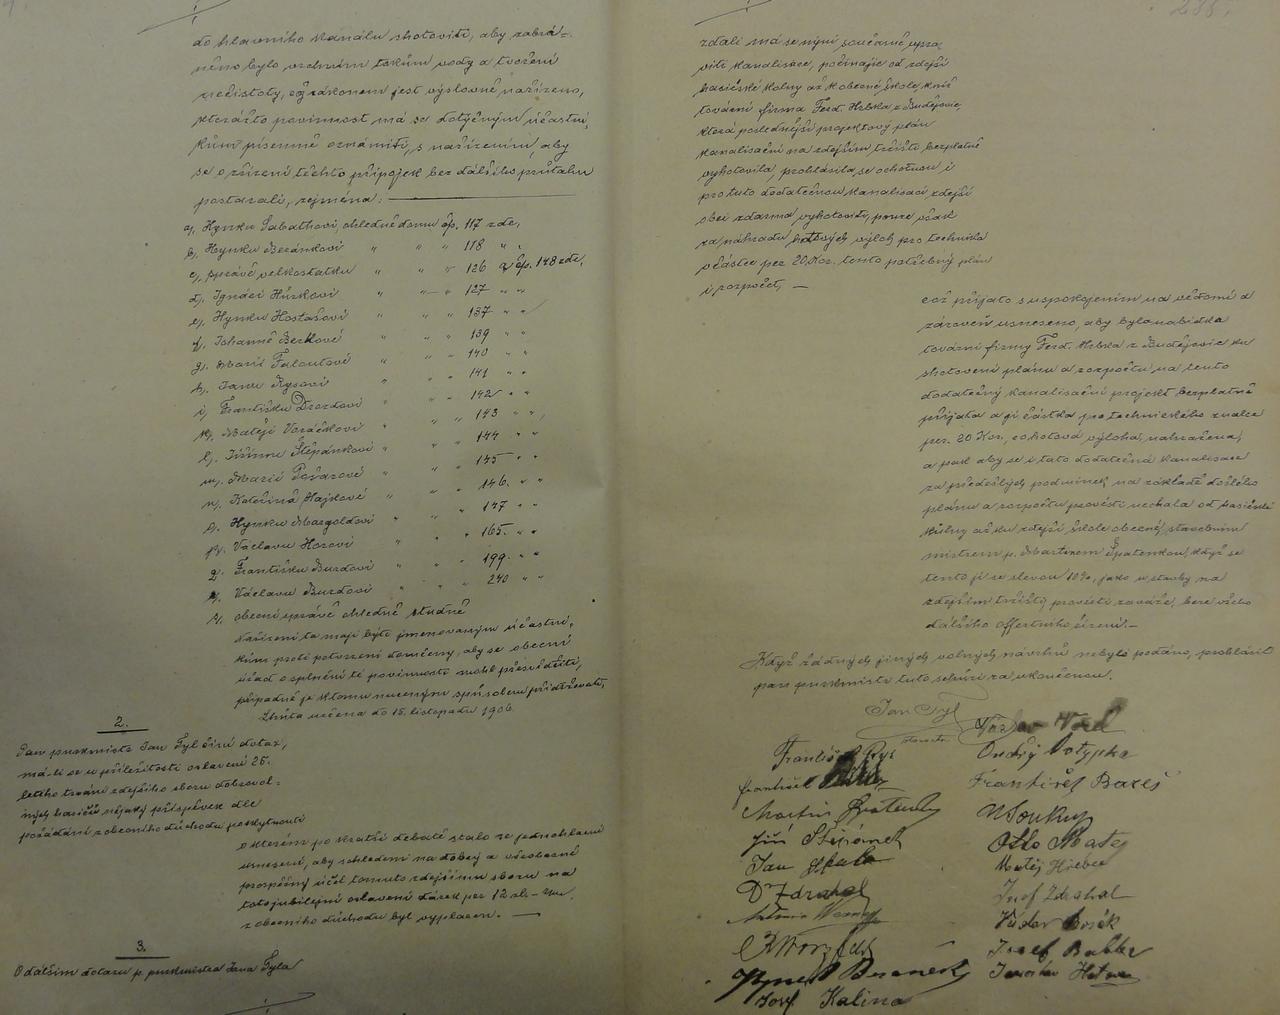 do hlavního kanálu shotoviti, aby zabrá-
něno bylo vrchním tokům vody a tvoření
nečistoty, což zákonem jest výslovně nařízeno,
kterážto povinnost má se dotyčným účastní-
kům písemně oznámiti, s nařízením, aby
se o zřízení těchto přípojek bez dalšího průtahu
postarali, zejména:
a, Hynku Sabathovi, ohledně domu čp. 117 zde,
b, Hynku Beránkovi " " " 118 " "
c, správě velkostatku " " " 126 a čp. 148 zde,
d, Ignáci Hůrkovi " " " 127 " "
e, Hynku Hostašovi " " " 137 " "
f, Johanně Berkové " " " 139 " "
g, Marii Falautovi " " " 140 " "
h, Janu Rysovi " " " 141 " "
i, Františku Drozdovi " " " 142 " "
k, Matěji Voráčkovi " " " 143 " "
l, Jiřímu Štěpánkovi " " " 144 " "
m, Marii " " " 145 " "
n, Kateřině Hajdové " " " 146. " "
o, Hynku Margoldovi " " " 147 " "
p, Václavu Horovi " " " 165. " "
q, Františku Burdovi " " " 199. " "
r, Václavu Burdovi " " " 240 " "
s, obecní správě ohledně studně
Nařízení ta mají býti jmenovaným účastní-
kům proti potvrzení doručeny, aby se obecní
úřad o splnění té povinnosti mohl přesvědčiti,
případně je k tomu nuceným způsobem přidržovati,
Lhůta určena do 15. listopadu 1906.
2.
Pan purkmistr Jan Tyl činí dotaz,
má-li se u příležitosti oslavení 25.
letého trvání zdejšího sboru dobrovol-
ných hasičů nějaký příspěvek dle
požádání z obecního důchodu poskytnouti
o kterém po kratší debatě stalo se jednohlasné
usnesení, aby vzhledem na dobrý a všeobecně
prospěšný účel tomuto zdejšímu sboru na
toto jubilejní oslavení dárek per 12 zl.
z obecního důchodu byl vyplacen. —
3.
O dalším dotazu p. purkmistra Jana Tyla
zdali má se nyní současně upra-
viti kanalisace, počínajíc od zdejší
hasičské kolny až k obecné škole,
tovární firma Ferd. Hrbka z Budějovic,
která poslednější projektový plán
kanalisační na zdejším tržišti bezplatně
vyhotovila, prohlásila se ochotnou i
pro tuto dodatečnou kanalisaci zdejší
obci zdarma vyhotoviti, pouze však
za náhradu hotových výloh pro technika
v částce per 20 Kor. tento potřebný plán
i rozpočet, —
což přijato s uspokojením na vědomí a
zároveň usneseno, aby byla nabídka
tovární firmy Ferd. Hrbka z Budějovic ku
shotovení plánu a rozpočtu na tento
dodatečný kanalisační projekt bezplatně
přijata a jí částka pro technického znalce
per. 20 Kor, co hotová výloha, nahražena,
a pak aby se i tato dodatečná kanalisace
za předešlých podmínek na základě došlého
plánu a rozpočtu provésti nechala od hasičské
kůlny až ku zdejší škole obecné, stavebním
mistrem p. Martinem Špatenkou, když se
tento ji se slevou 10%, jako u stavby na
zdejším tržišti provésti zaváže, beze všeho
dalšího offertního řízení.—
Když žádných jiných volných návrhů nebylo podáno, prohlásil
pan purkmistr tuto schůzi za ukončenou.
Jan Tyl
starosta
Václav
František Rys
Ondřej Votypka
František
František Bareš
Martin Špatenka
Jiří Štěpánek
Otto
Jan Skala
Matěj
D Zdrahal
Josef Zdrahal
Antonín
Václav Bosák
Josef
Hynek Beránek
Jaroslav
Josef Kalina